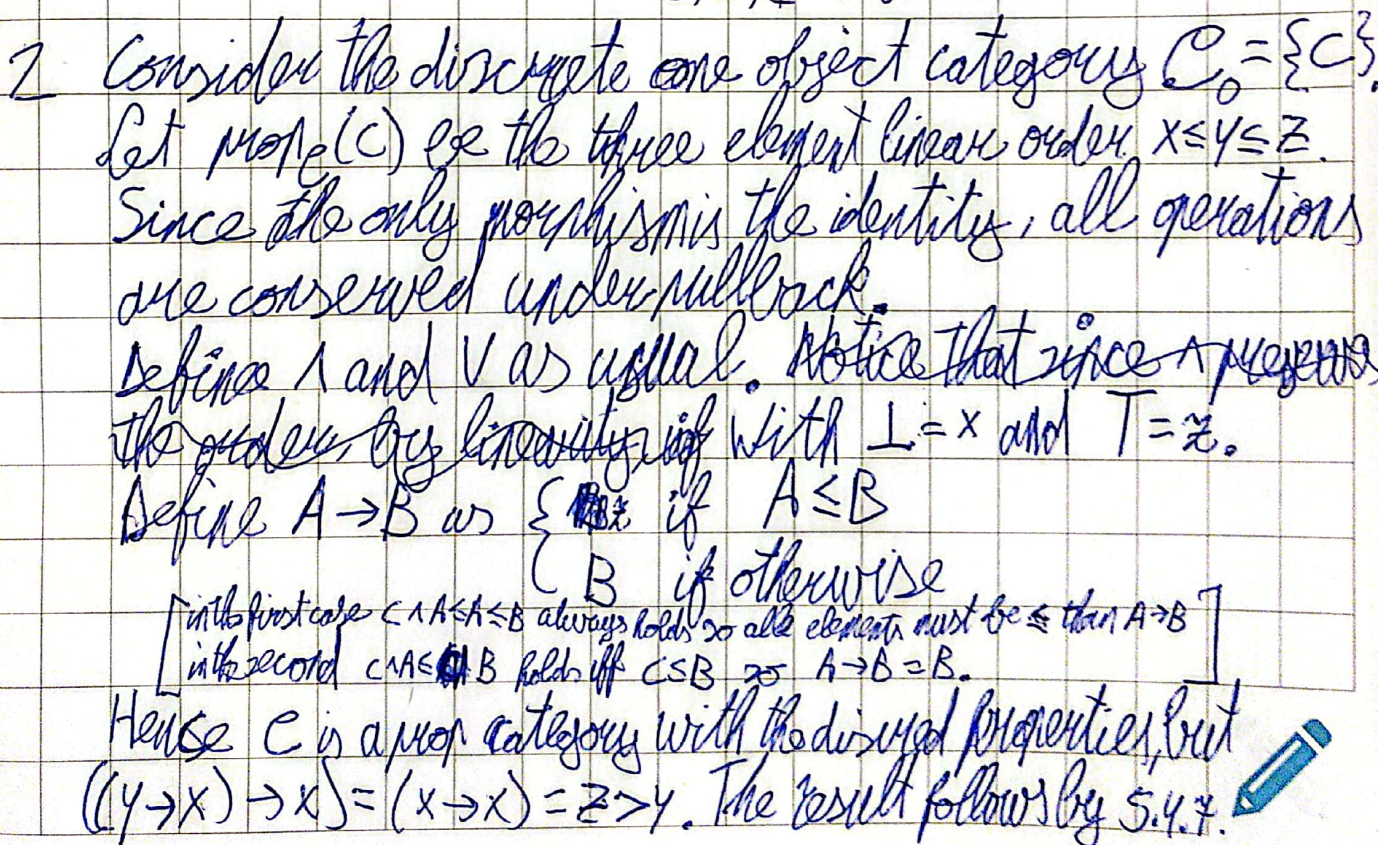 1 Consider the discrete one object category C₀ = {C}.
Let prop_C(C) be the three element linear order x ≤ y ≤ z.
Since the only morphism is the identity, all operations
are conserved under pullback.
Define ∧ and ∨ as usual. Notice that since ∧ preserves
the order by linearity, if With ⊥ = x and T = z.
Define A → B as { z if A ≤ B
B if otherwise
[in the first case C ∧ A ≤ A ≤ B always holds so all elements must be ≤ than A → B
in the second C ∧ A ≤ B holds iff C ≤ B so A → B = B.]
Hence C is a prop category with the disired properties, but
((y → x) → x) = (x → x) = z > y. The result follows by 5.4.7.